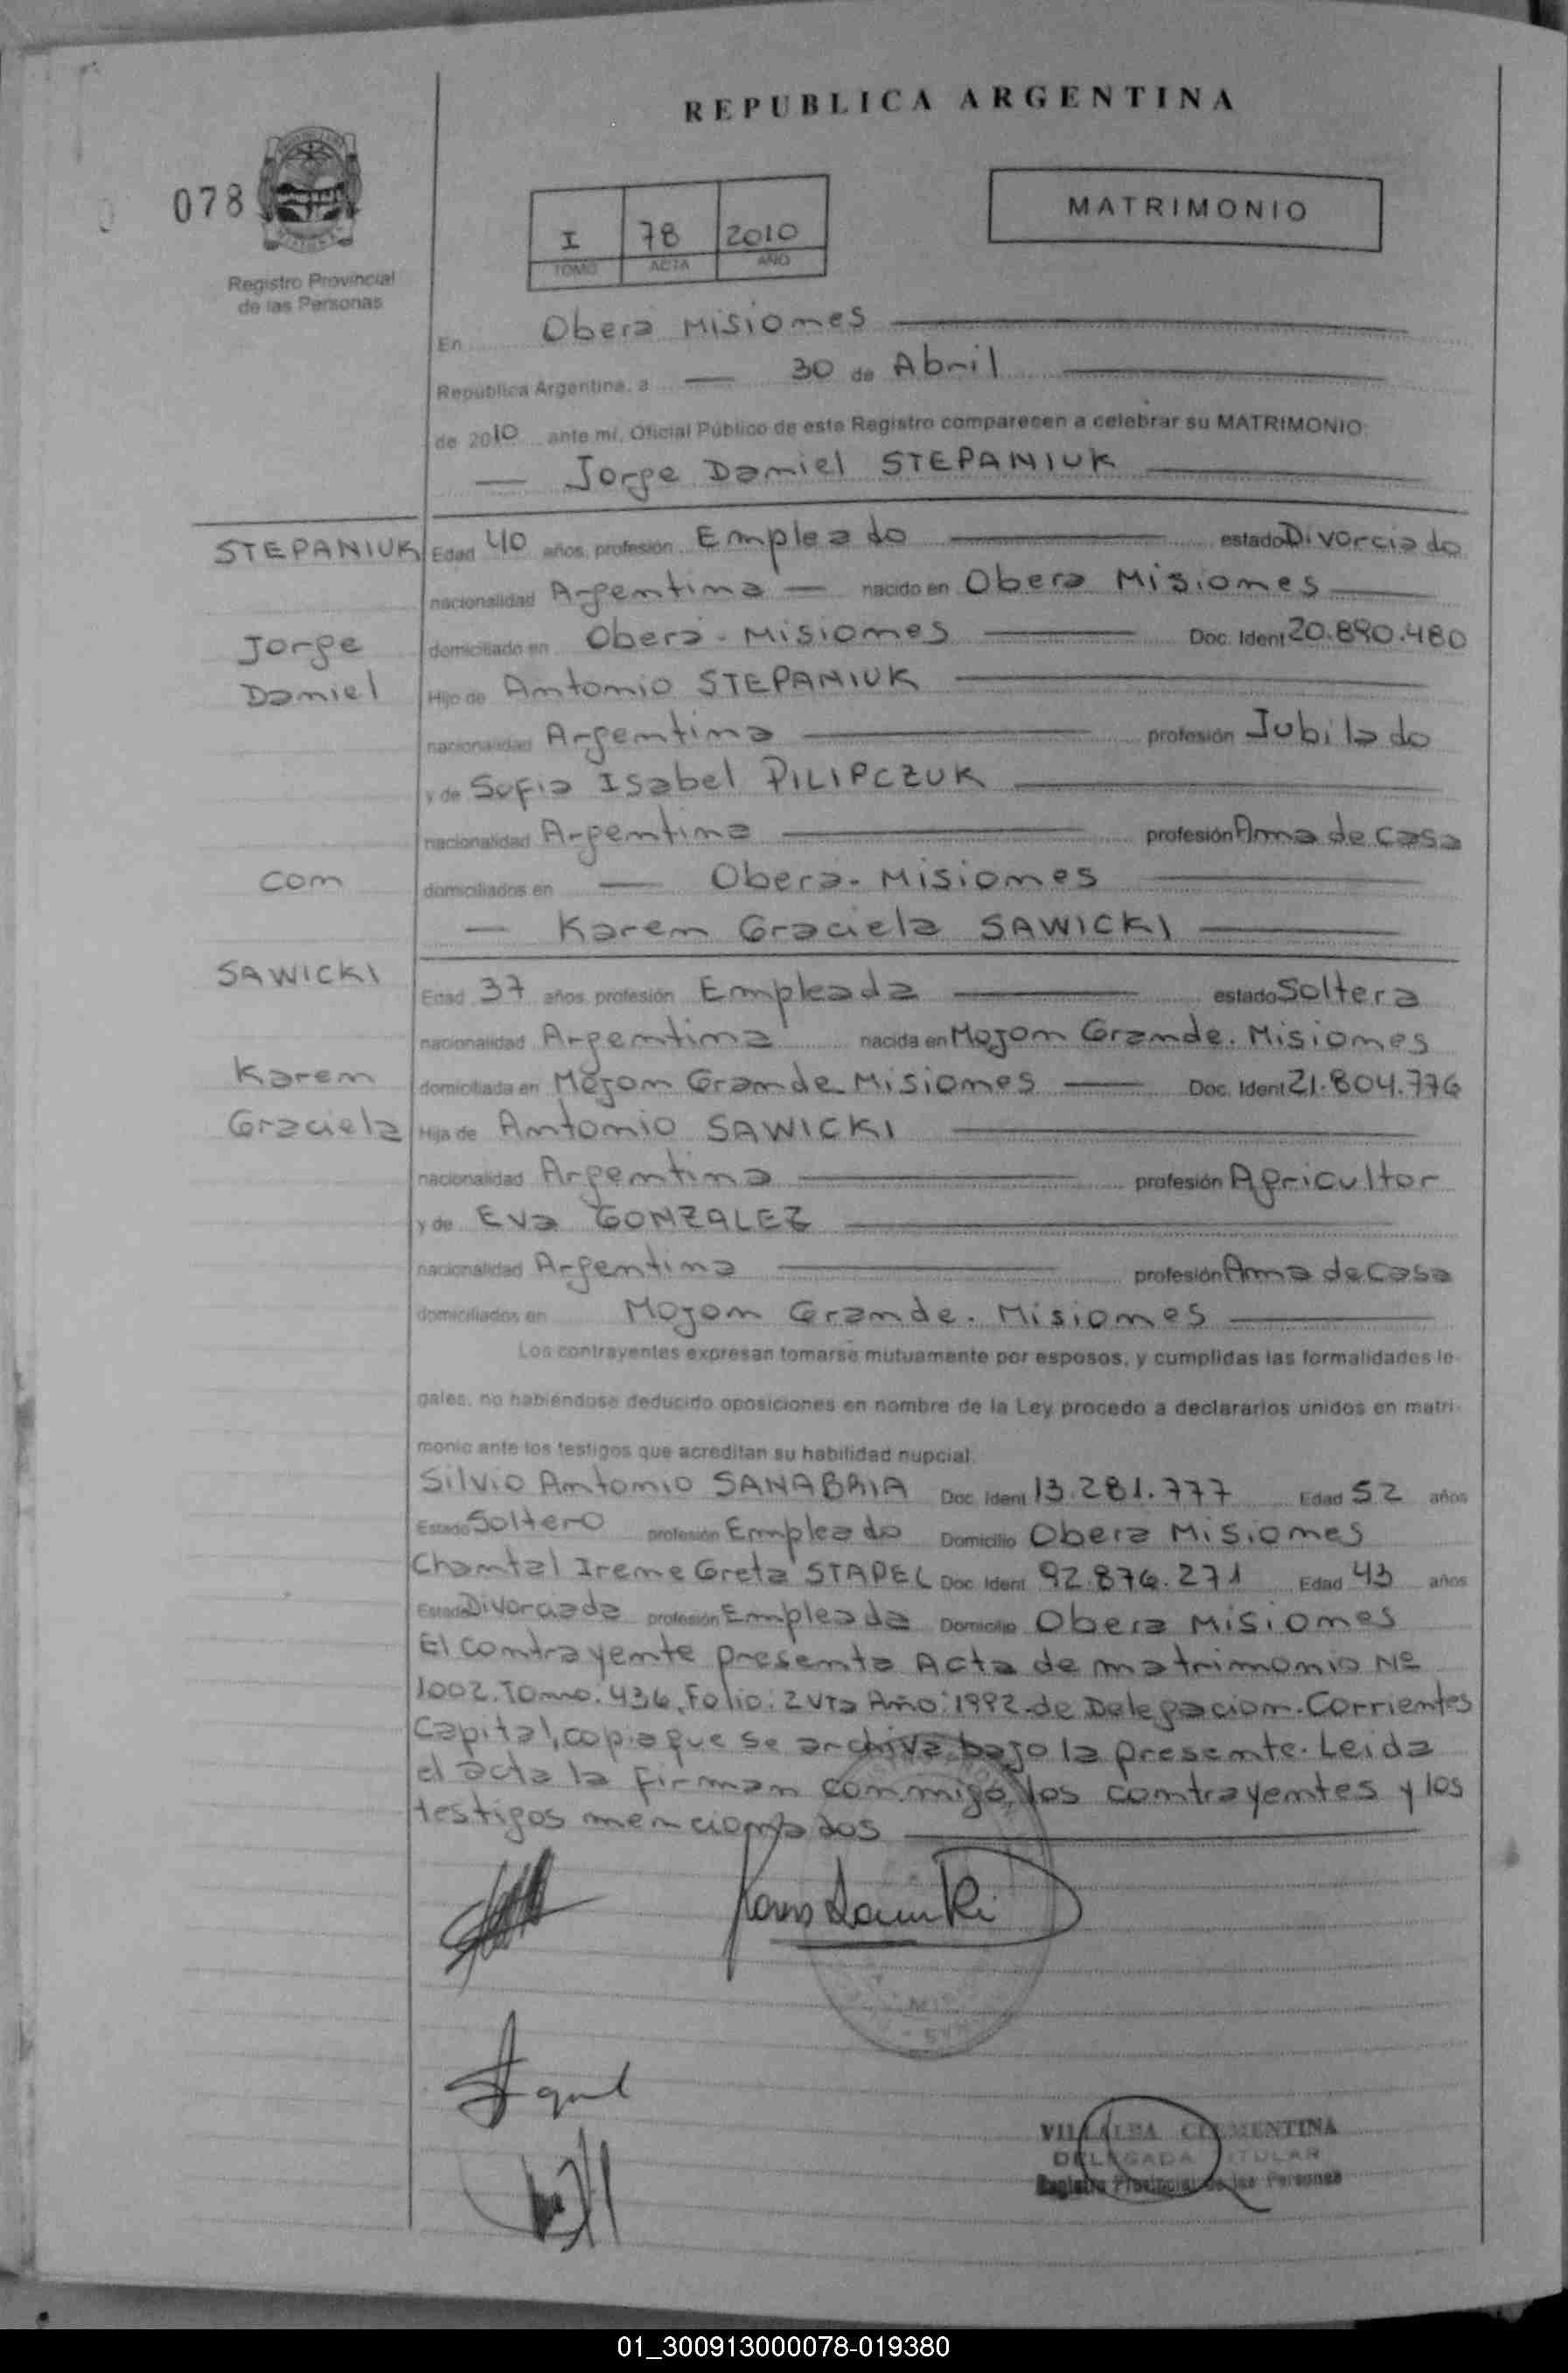 REPUBLICA ARGENTINA
078
Registro Provincial
de las Personas
I 78 2010
TOMO ACTA AÑO
MATRIMONIO
En Obera Misiones
República Argentina, a 30 de Abril
de 2010 ante mí, Oficial Público de este Registro comparecen a celebrar su MATRIMONIO:
Jorge Daniel STEPANIUK
STEPANIUK
Jorge
Daniel
con
SAWICKI
Karem
Graciela
Edad 40 años, profesión Empleado estado Divorciado
nacionalidad Argentina nacido en Obera Misiones
domiciliado en Oberá - Misiones Doc. Ident 20.890.480
Hijo de Antonio STEPANIUK
nacionalidad Argentina profesión Jubilado
y de Sofia Isabel PILIPCZUK
nacionalidad Argentina profesión Ama de Casa
domiciliados en Oberá - Misiones
Karem Graciela SAWICKI
Edad 37 años, profesión Empleada estado Soltera
nacionalidad Argentina nacida en Mojon Grande. Misiones
domiciliada en Mojon Grande Misiones Doc. Ident 21.804.776
Hija de Antonio SAWICKI
nacionalidad Argentina profesión Agricultor
y de Eva GONZALEZ
nacionalidad Argentina profesión Ama de Casa
domiciliados en Mojon Grande. Misiones
Los contrayentes expresan tomarse mutuamente por esposos, y cumplidas las formalidades le-
gales, no habiéndose deducido oposiciones en nombre de la Ley procedo a declararlos unidos en matri-
monio ante los testigos que acreditan su habilidad nupcial.
Silvio Antonio SANABRIA Doc. Ident 13.281.777 Edad 52 años
Estado Soltero profesión Empleado Domicilio Obera Misiones
Chantal Irene Greta STAPEL Doc. Ident 92.876.271 Edad 43 años
Estado Divorciada profesión Empleada Domicilio Obera Misiones
El contrayente presenta Acta de matrimonio Nº
1002. Tomo: 436, Folio: 2 Vta Año: 1992 de Delegacion. Corrientes
Capital, copia que se archiva bajo la presente. Leida
el acta la firman conmigo, los contrayentes y los
testigos mencionados
VILLALBA CLEMENTINA
DELEGADA TITULAR
Registro Provincial de las Personas
01_300913000078-019380